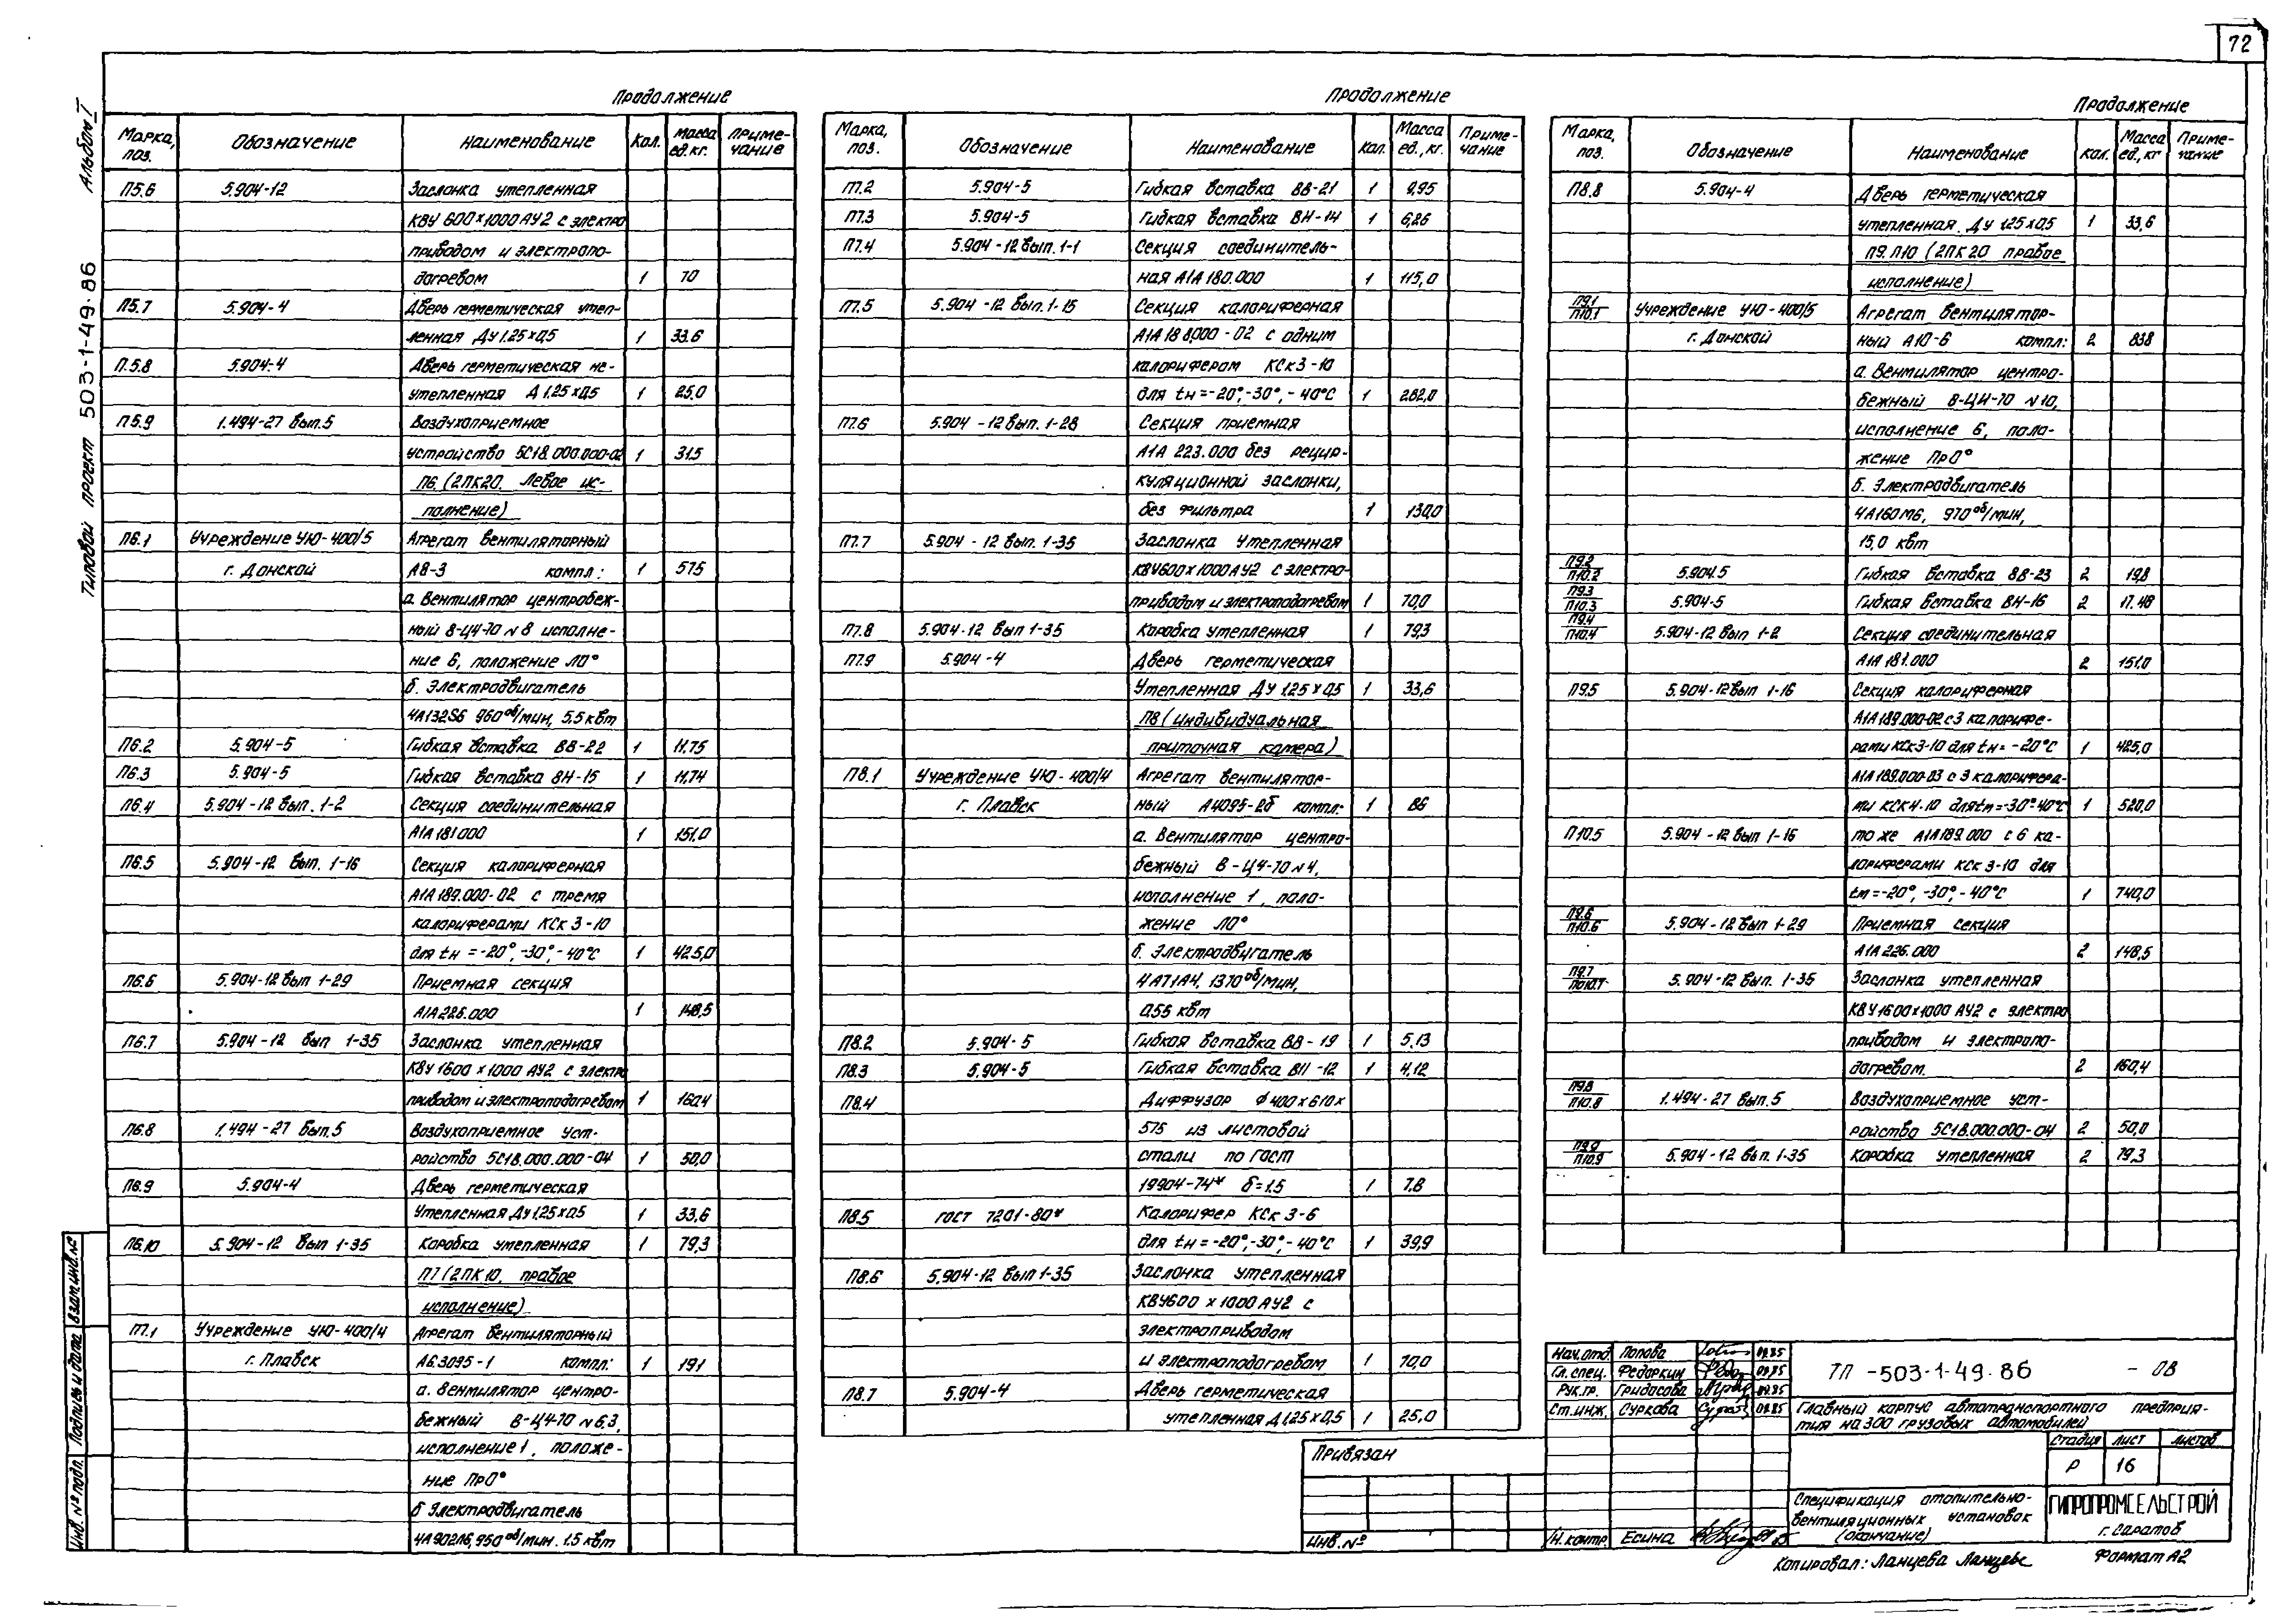 72
Альбом I
Типовой проект 503-1-49.86
Продолжение
Марка, поз. Обозначение Наименование Кол. Масса ед.кг. Приме-чание
П5.6 5.904-12 Заслонка утепленная
КВУ 600×1000 АУ2 с электро
приводом и электропо-
догревом 1 70
П5.7 5.904-4 Дверь герметическая утеп-
ленная ДУ 1.25×0,5 1 33.6
П.5.8 5.904-4 Дверь герметическая не-
утепленная Д 1.25×0,5 1 25,0
П5.9 1.494-27 вып.5 Воздухоприемное
устройство 5С18.000.000-02 1 31,5
П6 (2ПК20. Левое ис-
полнение)
П6.1 Учреждение УЮ-400/5 Агрегат вентиляторный
г. Донской А8-3 компл: 1 575
а. Вентилятор центробеж-
ный В-Ц4-70 №8 исполне-
ние 6, положение Л0°
б. Электродвигатель
4А132S6 960 об/мин, 5.5 квт
П6.2 5.904-5 Гибкая вставка ВВ-22 1 11.75
П6.3 5.904-5 Гибкая вставка ВН-15 1 11.74
П6.4 5.904-12 вып. 1-2 Секция соединительная
А1А 181 000 1 151.0
П6.5 5.904-12 вып. 1-16 Секция калориферная
А1А 189.000-02 с тремя
калориферами КСк 3-10
для tн = -20°, -30°, -40°С 1 425,0
П6.6 5.904-12 вып 1-29 Приемная секция
А1А 226.000 1 148,5
П6.7 5.904-12 вып 1-35 Заслонка утепленная
КВУ 1600×1000 АУ2 с электро
приводом и электроподогревом 1 160,4
П6.8 1.494-27 вып.5 Воздухоприемное уст-
ройство 5С18.000.000-04 1 50,0
П6.9 5.904-4 Дверь герметическая
Утепленная ДУ 1,25×0,5 1 33,6
П6.10 5.904-12 вып 1-35 Коробка утепленная 1 79,3
П7 (2ПК10, правое
исполнение)
П7.1 Учреждение УЮ-400/4 Агрегат вентиляторный
г. Плавск А6.3095-1 компл: 1 191
а. Вентилятор центро-
бежный В-Ц4-70 №6,3,
исполнение 1, положе-
ние Пр0°
б Электродвигатель
4А90L6, 950 об/мин. 1.5 квт
Продолжение
Марка, поз. Обозначение Наименование Кол. Масса ед., кг. Приме-чание
П7.2 5.904-5 Гибкая вставка ВВ-21 1 9,95
П7.3 5.904-5 Гибкая вставка ВН-14 1 6,26
П7.4 5.904-12 вып. 1-1 Секция соединитель-
ная А1А 180.000 1 115,0
П7.5 5.904-12 вып. 1-15 Секция калориферная
А1А 188.000-02 с одним
калорифером КСк3-10
для tн = -20°, -30°, -40°С 1 282,0
П7.6 5.904-12 вып. 1-28 Секция приемная
А1А 223.000 без рецир-
куляционной заслонки,
без фильтра 1 130,0
П7.7 5.904-12 вып. 1-35 Заслонка утепленная
КВУ600×1000 АУ2 с электро-
приводом и электроподогревом 1 70,0
П7.8 5.904-12 вып 1-35 Коробка утепленная 1 79,3
П7.9 5.904-4 Дверь герметическая
Утепленная ДУ 1.25×0,5 1 33,6
П8 (индивидуальная
приточная камера)
П8.1 Учреждение УЮ-400/4 Агрегат вентилятор-
г. Плавск ный А4095-2б компл: 1 86
а. Вентилятор центро-
бежный В-Ц4-70 №4,
исполнение 1, поло-
жение Л0°
б. Электродвигатель
4А71А4, 1370 об/мин,
0.55 квт
П8.2 5.904-5 Гибкая вставка ВВ-19 1 5,13
П8.3 5.904-5 Гибкая вставка ВН-12 1 4,12
П8.4 Диффузор ф400×610×
575 из листовой
стали по ГОСТ
19904-74* б=1.5 1 7.8
П8.5 ГОСТ 7201-80* Калорифер КСк 3-6
для tн = -20°, -30°, -40°С 1 39,9
П8.6 5.904-12 вып 1-35 Заслонка утепленная
КВУ600×1000 АУ2 с
электроприводом
и электроподогревом 1 70,0
П8.7 5.904-4 Дверь герметическая
утепленная Д 1.25×0,5 1 25,0
Продолжение
Марка, поз. Обозначение Наименование Кол. Масса ед., кг Приме-чание
П8.8 5.904-4 Дверь герметическая
утепленная ДУ 1.25×0,5 1 33,6
П9. П10 (2ПК20 правое
исполнение)
П9.1 П10.1 Учреждение УЮ-400/5 Агрегат вентилятор-
г. Донской ный А10-6 компл: 2 838
а. Вентилятор центро-
бежный В-Ц4-70 №10,
исполнение 6, поло-
жение Пр0°
б. Электродвигатель
4А160М6, 970 об/мин,
15,0 квт
П9.2 П10.2 5.904.5 Гибкая вставка ВВ-23 2 19,8
П9.3 П10.3 5.904-5 Гибкая вставка ВН-16 2 17.48
П9.4 П10.4 5.904-12 вып 1-2 Секция соединительная
А1А 181.000 2 151.0
П9.5 5.904-12 вып 1-16 Секция калориферная
А1А 189.000-02 с 3 калорифе-
рами КСк3-10 для tн = -20°С 1 425,0
А1А 189.000-03 с 3 калорифера-
ми КСК4-10 для tн=-30°-40°С 1 520,0
П10.5 5.904-12 вып 1-16 то же А1А189.000 с 6 ка-
лориферами КСк 3-10 для
tн = -20°, -30°, -40°С 1 740,0
П9.6 П10.6 5.904-12 вып 1-29 Приемная секция
А1А 226.000 2 148,5
П9.7 П10.7 5.904-12 вып. 1-35 Заслонка утепленная
КВУ1600×1000 АУ2 с электро
приводом и электропо-
догревом. 2 160,4
П9.8 П10.8 1.494-27 вып.5 Воздухоприемное уст-
ройство 5С18.000.000-04 2 50,0
П9.9 П10.9 5.904-12 вып. 1-35 Коробка утепленная 2 79,3
Нач.отд. Попова 09.85
Гл.спец. Федоркин 09.85
Рук.гр. Гридасова 09.85
Ст.инж. Суркова 09.85
Н.контр. Есина 09.85
ТП -503-1-49.86 - ОВ
Главный корпус автотранспортного предприя-
тия на 300 грузовых автомобилей
Стадия Лист Листов
Р 16
Спецификация отопительно-
вентиляционных установок
(окончание)
ГИПРОПРОМСЕЛЬСТРОЙ
г. Саратов
Привязан
Инв. №
Копировал: Ланцева
Формат А2
Инв. № подл. Подпись и дата Взам.инв.№